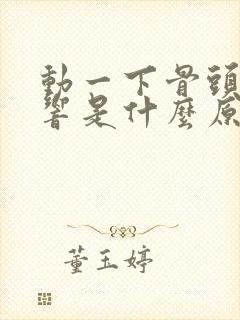 動一下骨頭
響是什麼原
董玉婷